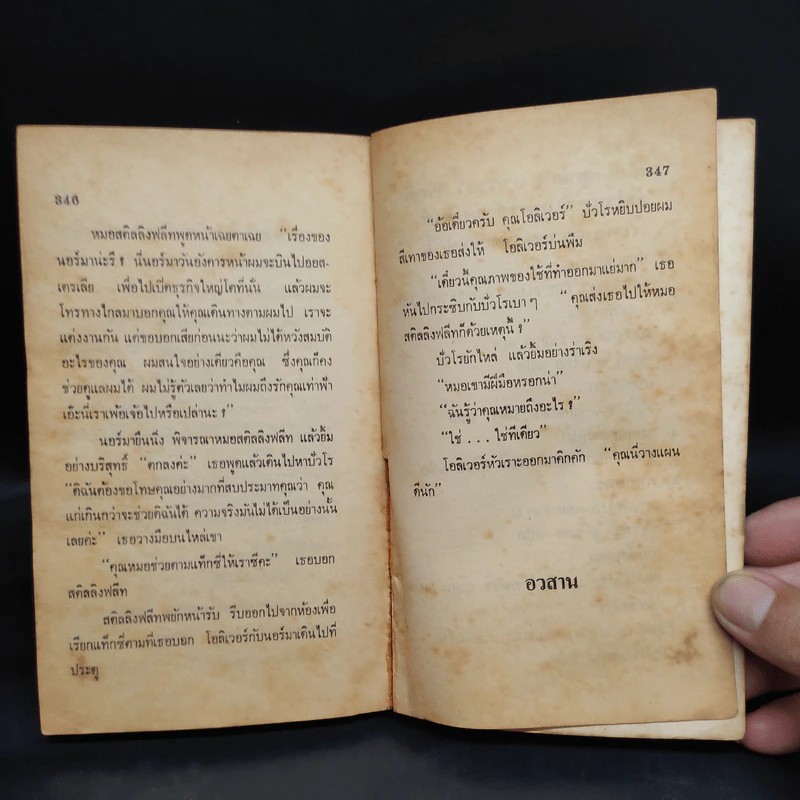 346
หมอสติลลิงฟลีทพูดหน้าเฉยตาเฉย “เรื่องของ
นอร์มาน่ะรึ ? นี่นอร์มาวันอังคารหน้าผมจะบินไปออส-
เตรเลีย เพื่อไปเปิดธุรกิจใหญ่โตที่นั่น แล้วผมจะ
โทรทางไกลมาบอกคุณให้คุณเดินทางตามผมไป เราจะ
แต่งงานกัน แต่ขอบอกเสียก่อนนะว่าผมไม่ได้หวังสมบัติ
อะไรของคุณ ผมสนใจอย่างเดียวคือคุณ ซึ่งคุณก็คง
ช่วยดูแลผมได้ ผมไม่รู้ตัวเลยว่าทำไมผมถึงรักคุณเท่าฟ้า
เอ๊ะนี่เราเพ้อเจ้อไปหรือเปล่านะ ?”
นอร์มายืนนิ่ง พิจารณาหมอสติลลิงฟลีท แล้วยิ้ม
อย่างบริสุทธิ์ “ตกลงค่ะ” เธอพูดแล้วเดินไปหาปัวโร
“ดิฉันต้องขอโทษคุณอย่างมากที่สบประมาทคุณว่า คุณ
แก่เกินกว่าจะช่วยดิฉันได้ ความจริงมันไม่ได้เป็นอย่างนั้น
เลยค่ะ” เธอวางมือบนไหล่เขา
“คุณหมอช่วยตามแท็กซี่ให้เราซีคะ” เธอบอก
สติลลิงฟลีท
สติลลิงฟลีทพยักหน้ารับ รีบออกไปจากห้องเพื่อ
เรียกแท็กซี่ตามที่เธอบอก โอลิเวอร์กับนอร์มาเดินไปที่
ประตู
347
“อ้อเดี๋ยวครับ คุณโอลิเวอร์” ปัวโรหยิบปอยผม
สีเทาของเธอส่งให้ โอลิเวอร์บ่นพึม
“เดี๋ยวนี้คุณภาพของใช้ที่ทำออกมาแย่มาก” เธอ
หันไปกระซิบกับปัวโรเบา ๆ “คุณส่งเธอไปให้หมอ
สติลลิงฟลีทก็ด้วยเหตุนี้ ?”
ปัวโรยักไหล่ แล้วยิ้มอย่างร่าเริง
“หมอเขามีฝีมือหรอกน่า”
“ฉันรู้ว่าคุณหมายถึงอะไร ?”
“ใช่ . . . ใช่ทีเดียว”
โอลิเวอร์หัวเราะออกมาคิกคัก “คุณนี่วางแผน
ดีนัก”
อวสาน